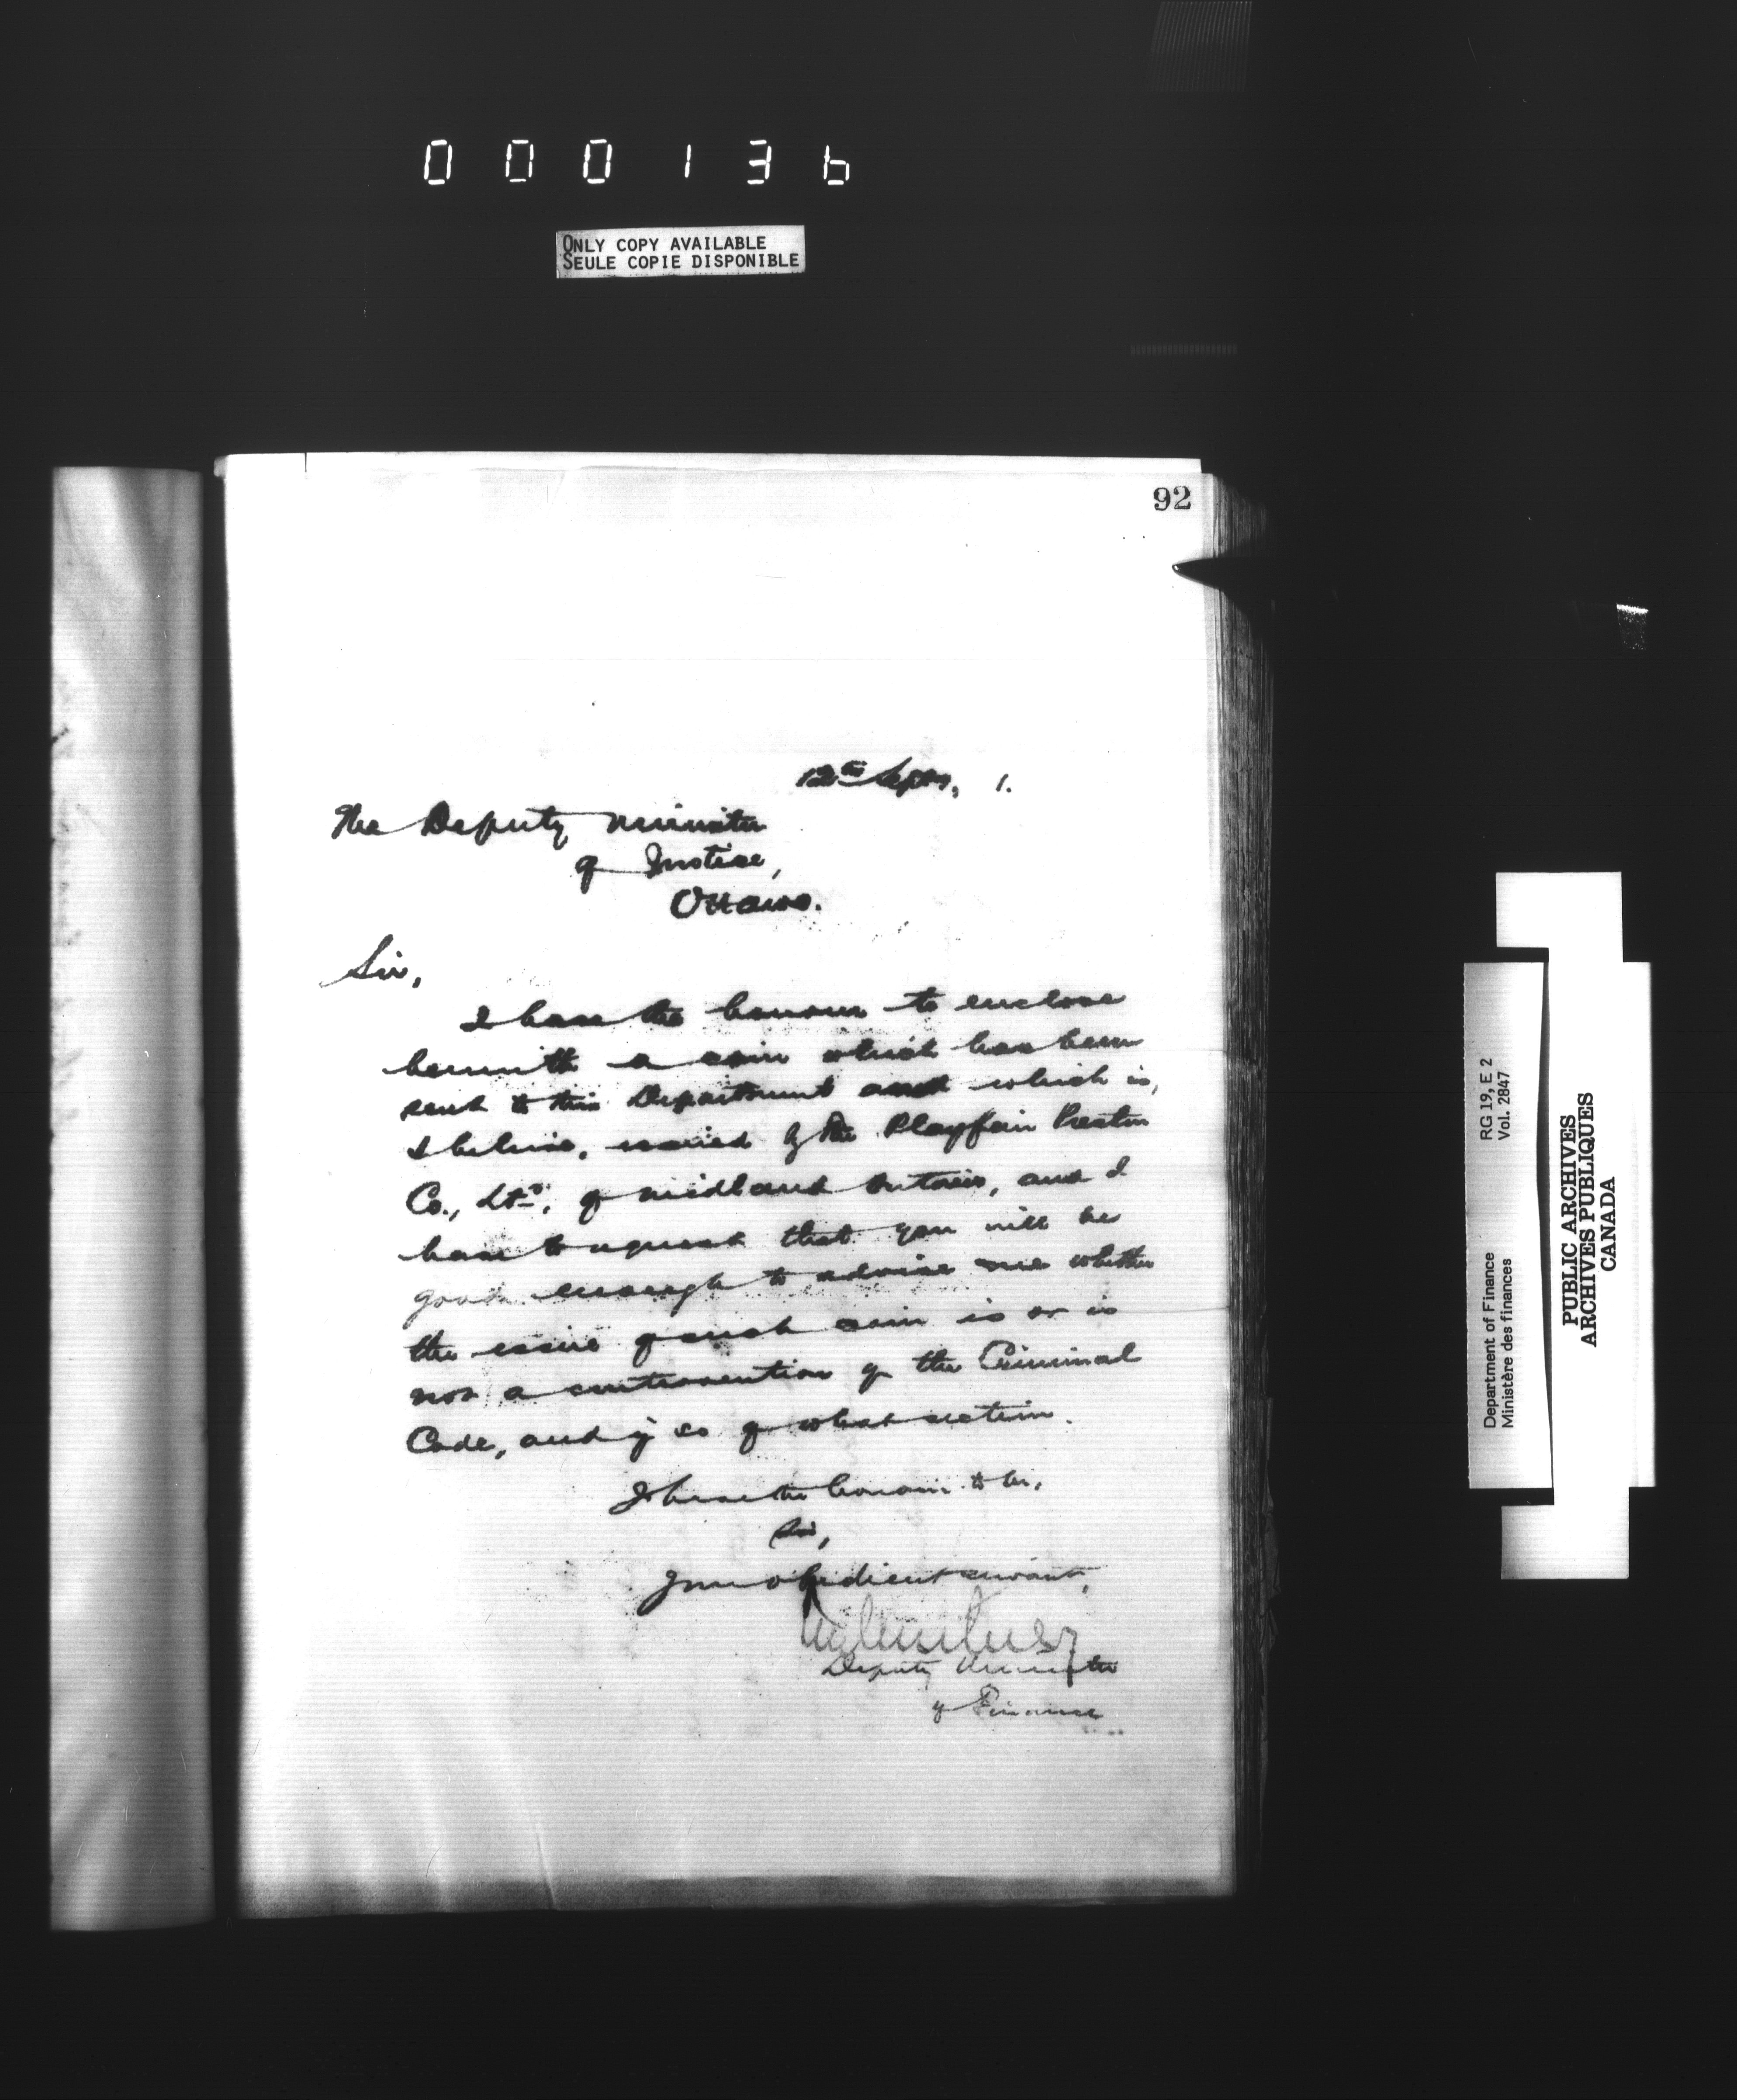 000136
ONLY COPY AVAILABLE
SEULE COPIE DISPONIBLE
92
12th Sept, 1.
The Deputy Minister
of Justice,
Ottawa.
Sir,
I have the honour to enclose
herewith a coin which has been
sent to this Department and which is,
I believe, issued by the Playfair Preston
Co., Ltd, of Midland Ontario, and I
have to request that you will be
good enough to advise me whether
the issue of such coin is or is
not a contravention of the Criminal
Code, and if so of what section.
I have the honour to be,
Sir,
Your obedient servant,
Deputy Minister
of Finance
Department of Finance RG 19, E 2
Ministère des finances Vol. 2847
PUBLIC ARCHIVES
ARCHIVES PUBLIQUES
CANADA